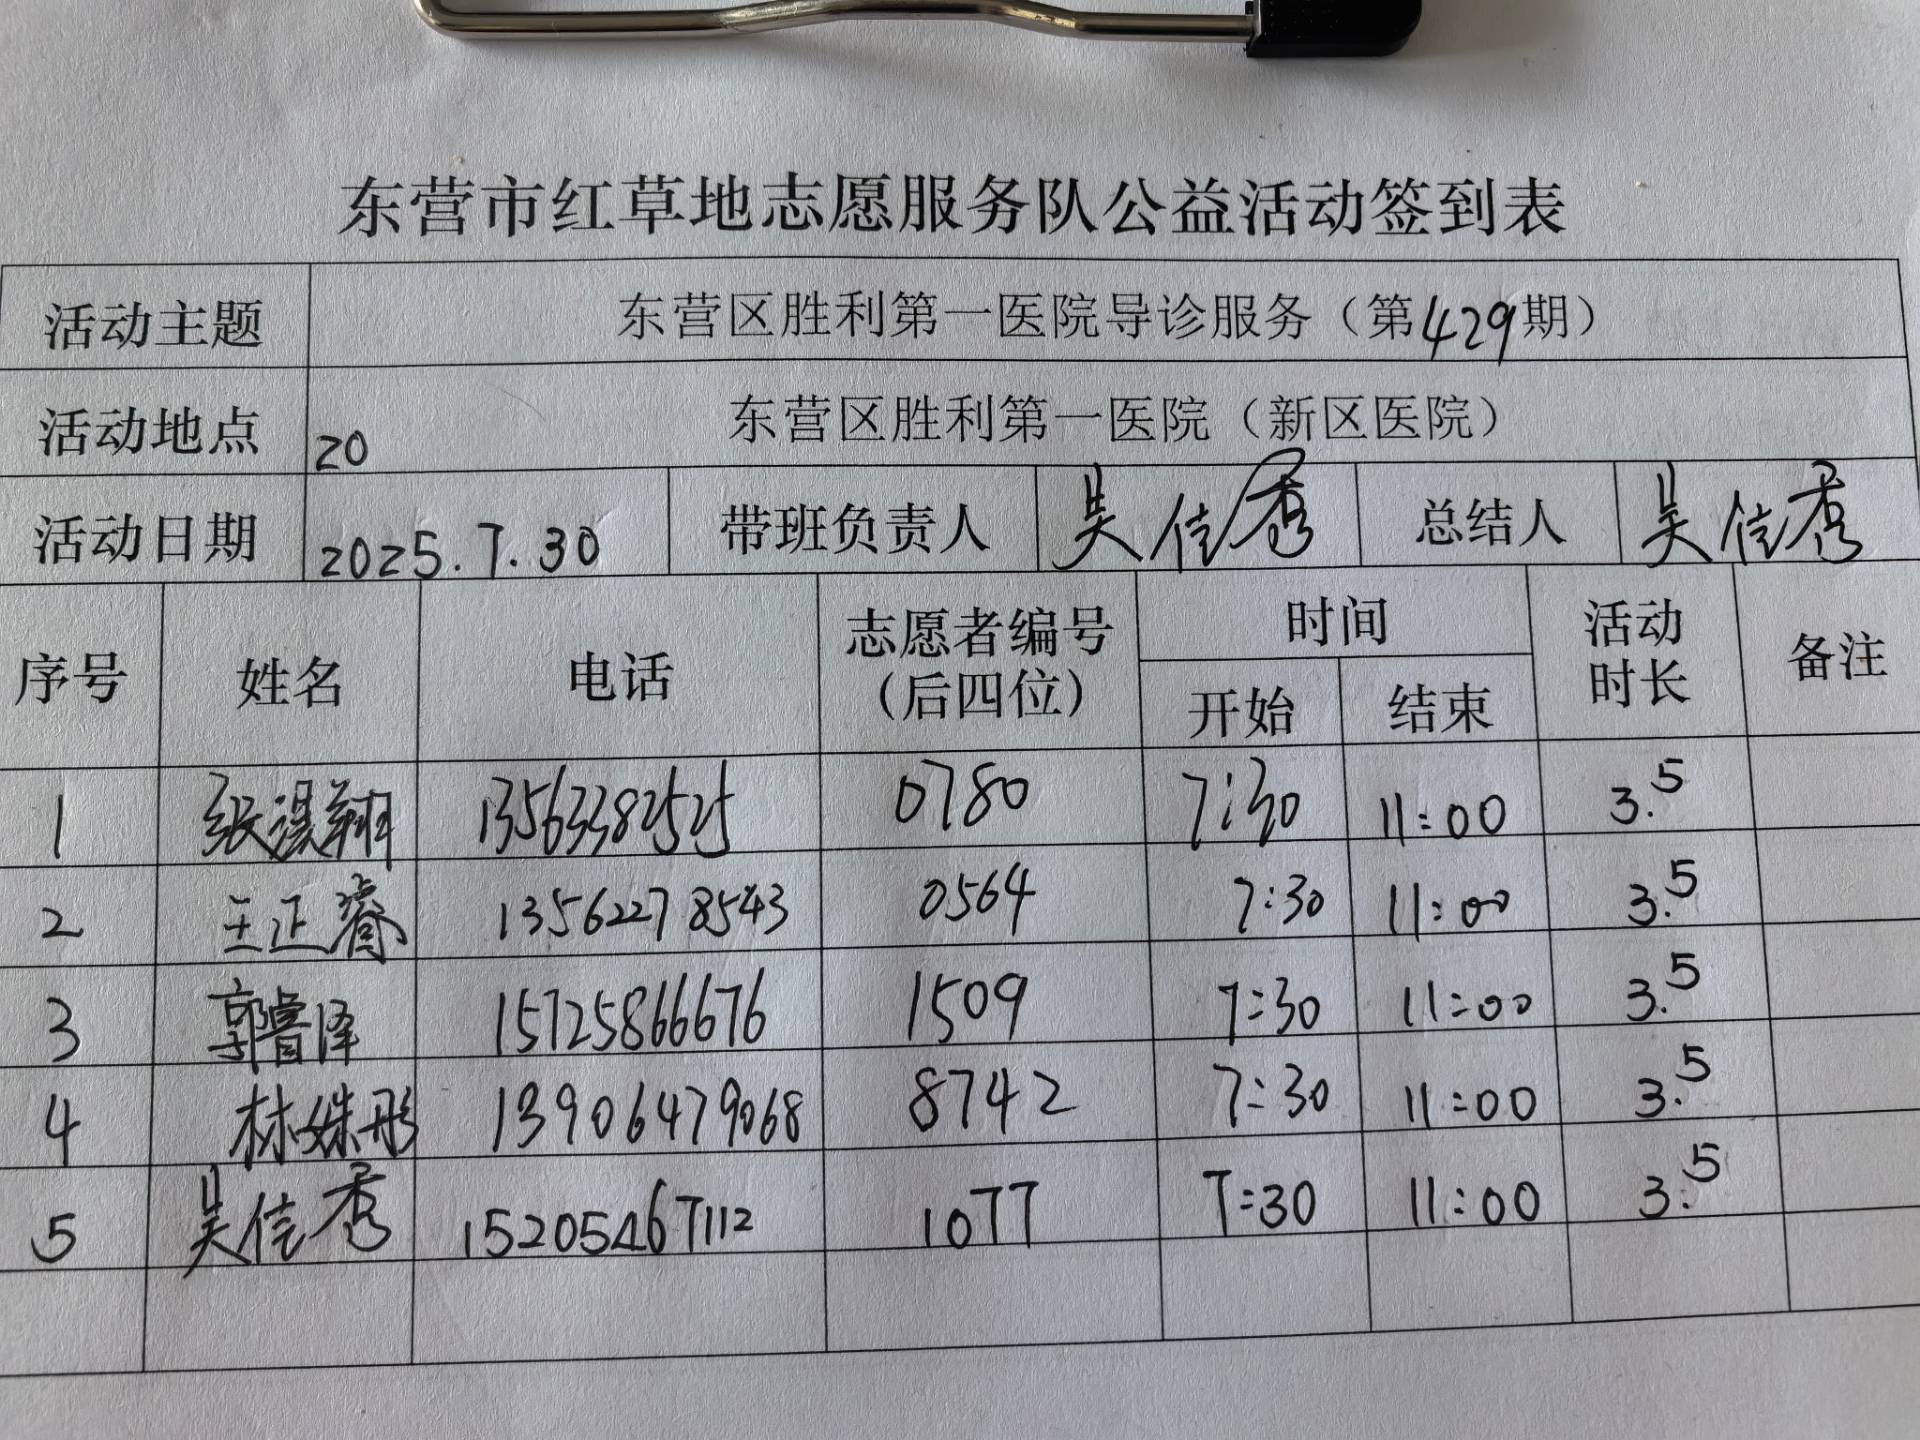 东营市红草地志愿服务队公益活动签到表
活动主题 东营区胜利第一医院导诊服务（第429期）
活动地点 20 东营区胜利第一医院（新区医院）
活动日期 2025.7.30 带班负责人 吴佳秀 总结人 吴佳秀
序号 姓名 电话 志愿者编号（后四位） 时间 开始 结束 活动时长 备注
1 张淏翔 13563382525 0780 7:30 11:00 3.5
2 王正睿 13562278543 0564 7:30 11:00 3.5
3 郭睿泽 15725866676 1509 7:30 11:00 3.5
4 林姝彤 13906479068 8742 7:30 11:00 3.5
5 吴佳秀 15205467112 1077 7:30 11:00 3.5